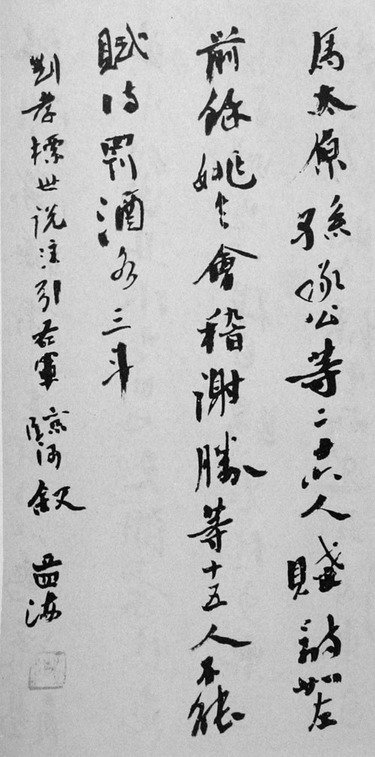 馬太原孫丞公等二十六人賦詩如左
前餘姚令會稽謝勝等十五人不能
賦詩罰酒各三斗
劉孝標世說注引右軍臨河敘 孟海